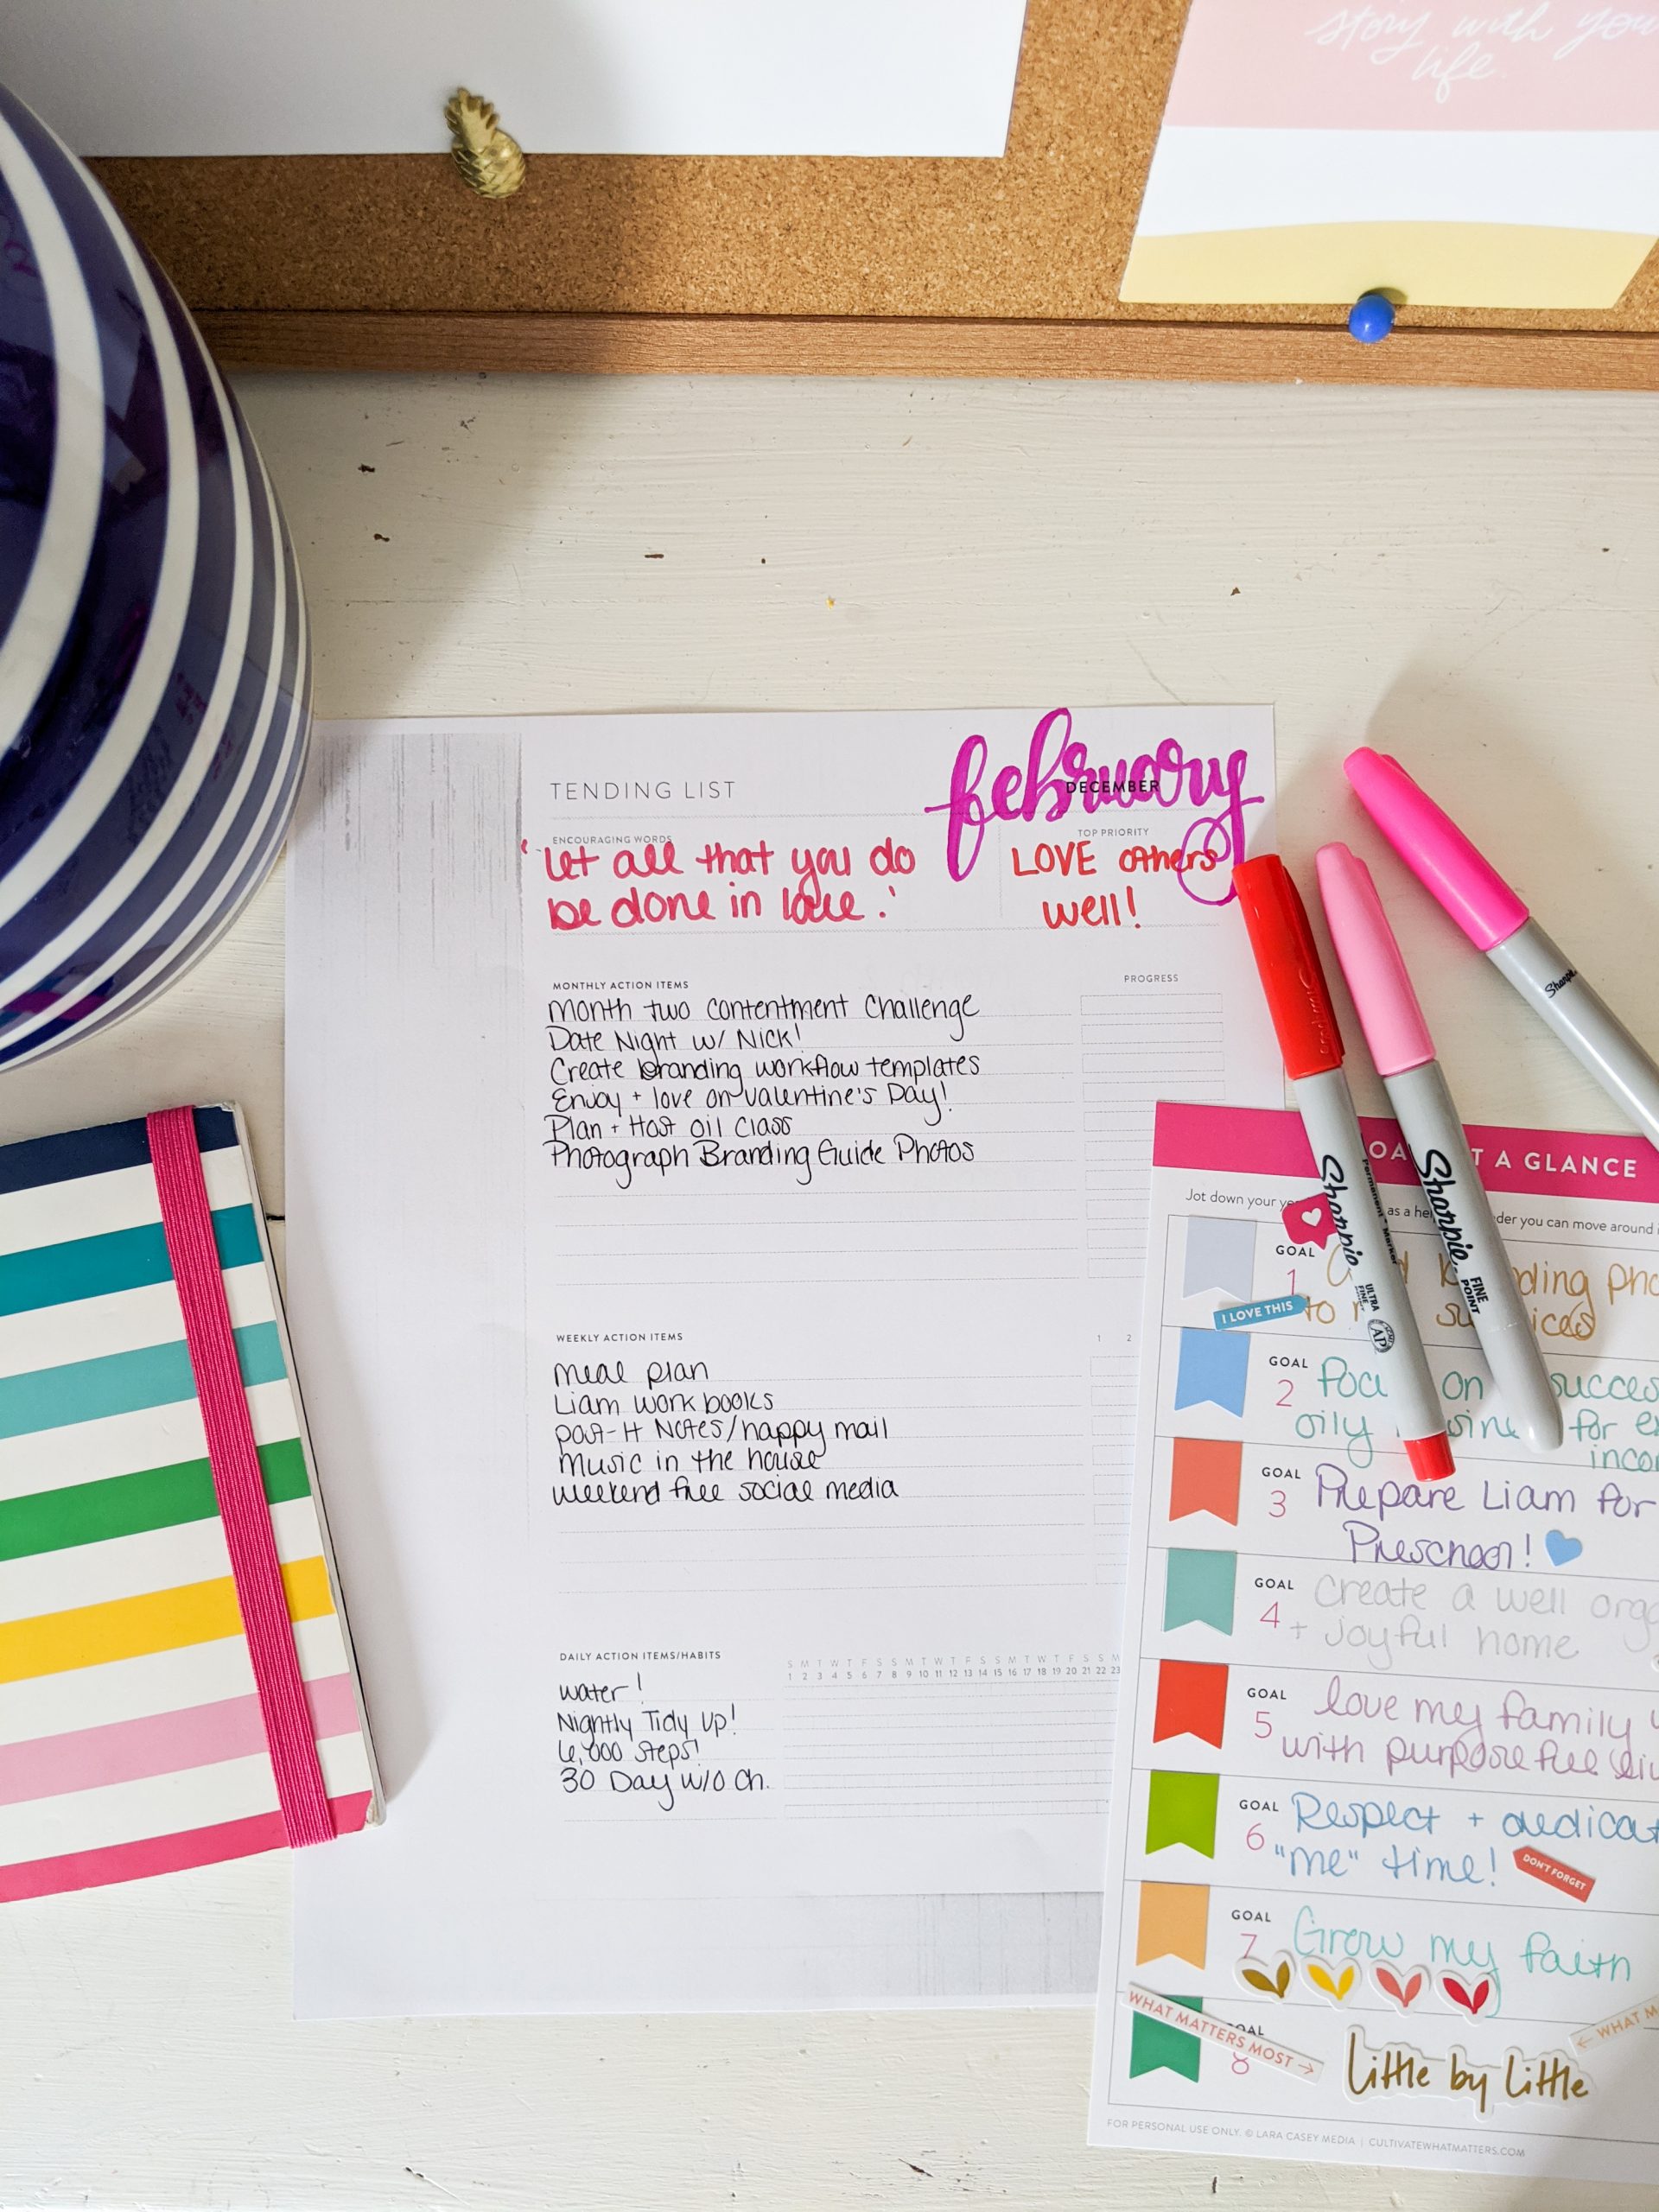 story with you
life.
TENDING LIST
february
DECEMBER
ENCOURAGING WORDS
'Let all that you do
be done in love.'
TOP PRIORITY
LOVE others
well!
MONTHLY ACTION ITEMS
PROGRESS
Month two contentment challenge
Date Night w/ Nick!
Create branding workflow templates
Enjoy + love on Valentine's Day!
Plan + Host oil class
Photograph Branding Guide Photos
WEEKLY ACTION ITEMS
1 2
meal plan
Liam workbooks
post-it Notes/happy mail
Music in the house
weekend free social media
DAILY ACTION ITEMS/HABITS
S M T W T F S S M T W T F S S M T W T F S S M
1 2 3 4 5 6 7 8 9 10 11 12 13 14 15 16 17 18 19 20 21 22 23
water!
Nightly Tidy Up!
6,000 Steps!
30 Day w/o Ch.
Sharpie
Sharpie
Permanent Marker
ULTRA FINE
AP
Sharpie
FINE POINT
T A GLANCE
Jot down your
as a
der you can move around
GOAL
1
ding pho
to
ices
I LOVE THIS
GOAL
2
on succes
oily for ex
incor
GOAL
3
Prepare Liam for
Preschool!
GOAL
4
Create a well orga
+ joyful home
GOAL
5
love my family
with purpose
GOAL
6
Respect + dedicat
"me" time!
DON'T FORGET
GOAL
7
Grow my faith
WHAT MATTERS MOST →
← WHAT M
8
little by little
FOR PERSONAL USE ONLY. © LARA CASEY MEDIA | CULTIVATEWHATMATTERS.COM